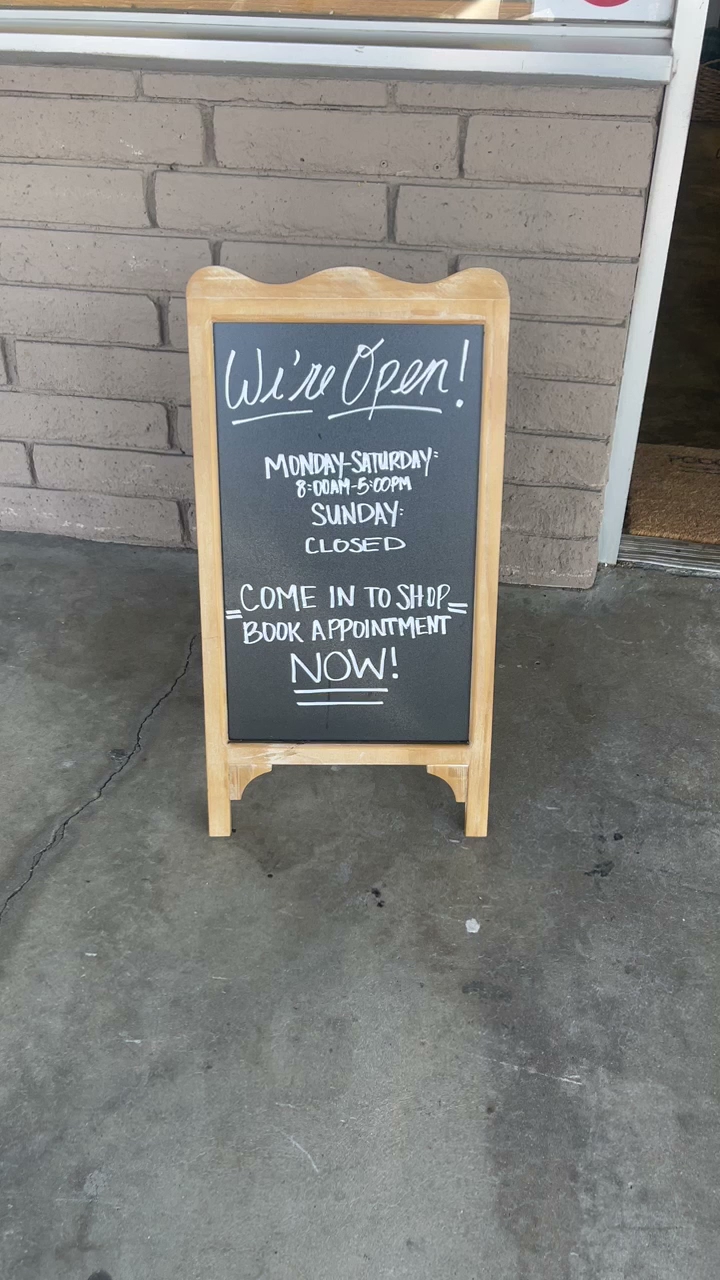 We're Open!
MONDAY-SATURDAY:
8:00AM-5:00PM
SUNDAY:
CLOSED
COME IN TO SHOP
BOOK APPOINTMENT
NOW!